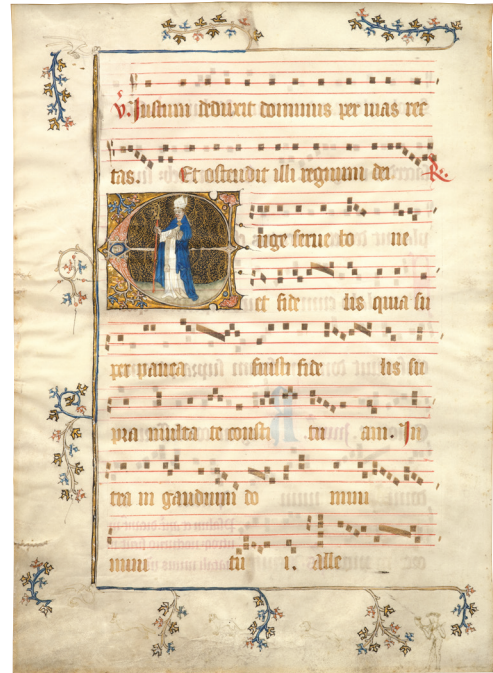 V. Justum deduxit dominus per uias rec
tas. Et ostendit illi regnum dei R.
Euge serue bo ne
et fide lis quia su
per pauca fuisti fide lis su
pra multa te consti tu am. In
tra in gaudium do mini
mini tu i. alle